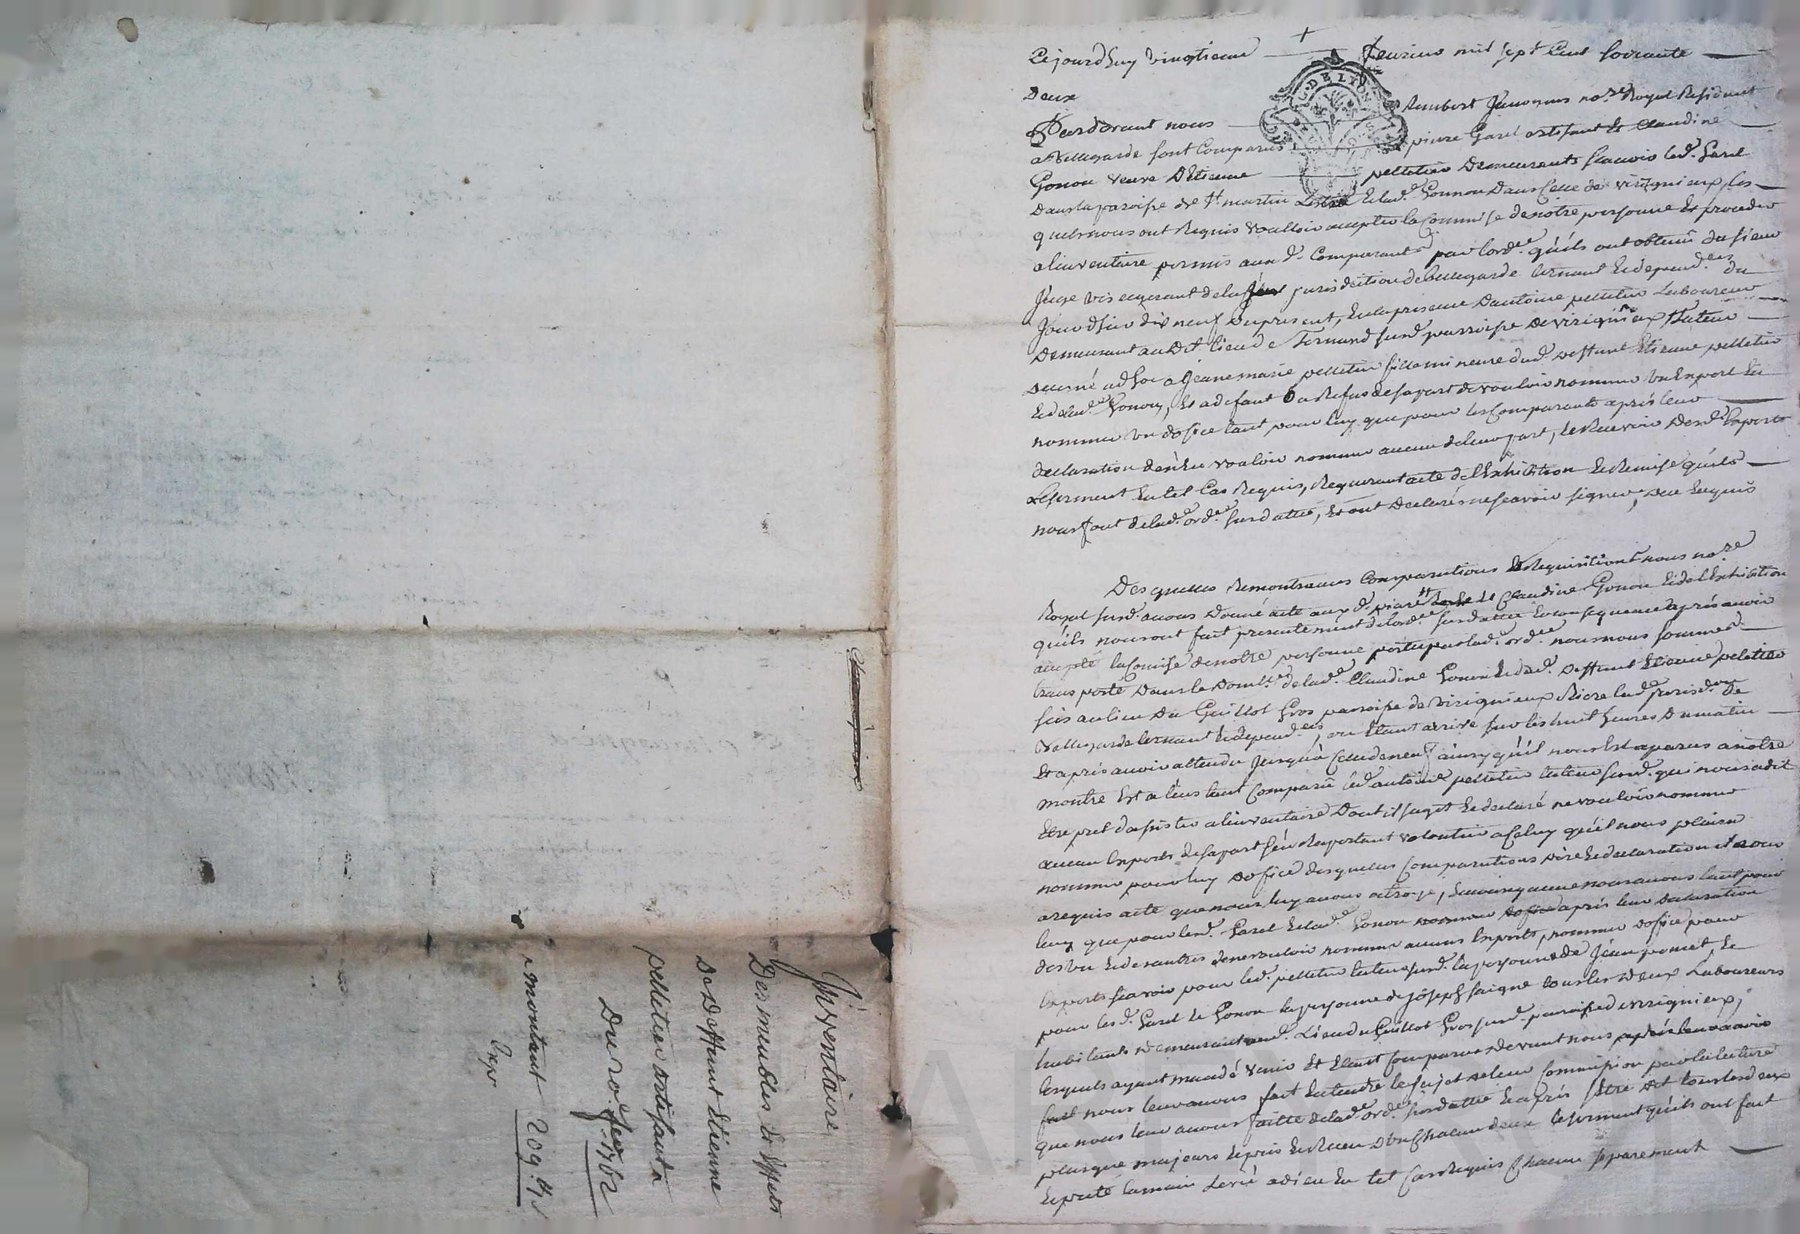 Inventaire
Des meubles Et Effets
De Deffunt Etienne
pelletier artisant
Du 20e. fevr. 1762
montant 209.
Expé
Cejourdhuy vingtieme fevrier mil sept Cent soixante
Deux
Pardevant nous Rambert Jamonius nore. Royal Residant
a Bellegarde sont Comparus pierre Garel artisant Et Claudine
Gonon veuve D'Etienne pelletier Demeurants scavoir led. Garel
Dans la paroisse de St. martin Lestra Et lade. Gonnon Dans Celle de virignieux, les
quels nous ont Requis vouloir accepter la Commise de notre personne Et proceder
a linventaire permis aux d. Comparants par lorde. quils ont obtenü du sieur
Juge vis regerant de la jurisdiction de Bellegarde lernaut Et dependces. du
Jour D'hier dix neuf Du present, En la presence Dantoine pelletier Laboureur
Demeurant au Dit lieu de fernand susd. parroisse de virignieux, tuteur
Decerné ad hoc a Jeanne marie pelletier fille mineure dud. Deffunt Etienne pelletier
Et de lade. Gonon, Et a defaut Ou Refus de sa part de vouloir nommer un Expert En
nommer un d'ofice tant pour luy que pour les Comparants après leur
declaration den'En vouloir nommer aucun de leur part, Et Recevoir Desd. Experts
Leserment En tel Cas Requis, Requerant acte de l'Exhibition Et Remise quils
nous font de lade. orde. susdattée, Et ont Declarés ne scavoir signer, De ce Enquis
Des quelles Remontrances Comparutions Et Requisitions nous nore.
Royal susd. avons Donné acte aux d. piere Et Claudine Gonon Et de l'Exhibition
quils nous ont fait presentement de lorde. susdattée En consequence après avoir
accepté la Comise de notre personne portée par lade. orde. nous nous sommes
transporté Dans le Domle. de lade. Claudine Gonon Et dud. Deffunt Etienne pelletier
sis au lieu Du Guillot Gros parroise de virignieux Riere lade. jurisdon. De
Bellegarde lernaut Et dependces, ou Etant arrivé sur les huit heures Du matin
Et après avoir attendu Jusqu'à Celle de neuf ainsy quil nous Est aparus a notre
montre Est a l'instant Comparü led. antoine pelletier tuteur susd. qui nous a dit
Etre pret d'asister a linventaire Dont il s'agit Et declaré ne vouloir nommer
aucun Experts de sa part s'en Raportant volontier a Celuy quil nous plaira
nommer pour luy d'ofice desquelles Comparutions dire Et declaration il nous
a requis acte que nous luy avons octroyé, En consequence nous avons tant pour
luy que pour lesd. Garel Et lade. Gonon nommer d'ofice après leur declaration
des'En vouloir nommer aucuns Experts, nommer d'ofice pour
Experts scavoir pour led. pelletier tuteur susd. la personne de Jean poncet, Et
pour lesd. Garel Et Gonon la personne de Joseph saigne tous les Deux Laboureurs
habitants Demeurants aud. Lieu du Guillot Gros susd. paroisse de virignieux,
lesquels ayant mandé venir Et Etant Comparus devant nous
nous leur avons fait Entendre le sujet de leur Commission par la lecture
que nous leur avons faitte de lade. orde. susdattée Et après s'etre dit tous les deux
plus que majeurs Repris Et Receu D'un Chacun deux le serment quils ont fait
Et preté la main Levée a dieu En tel Cas Requis Chacun separement